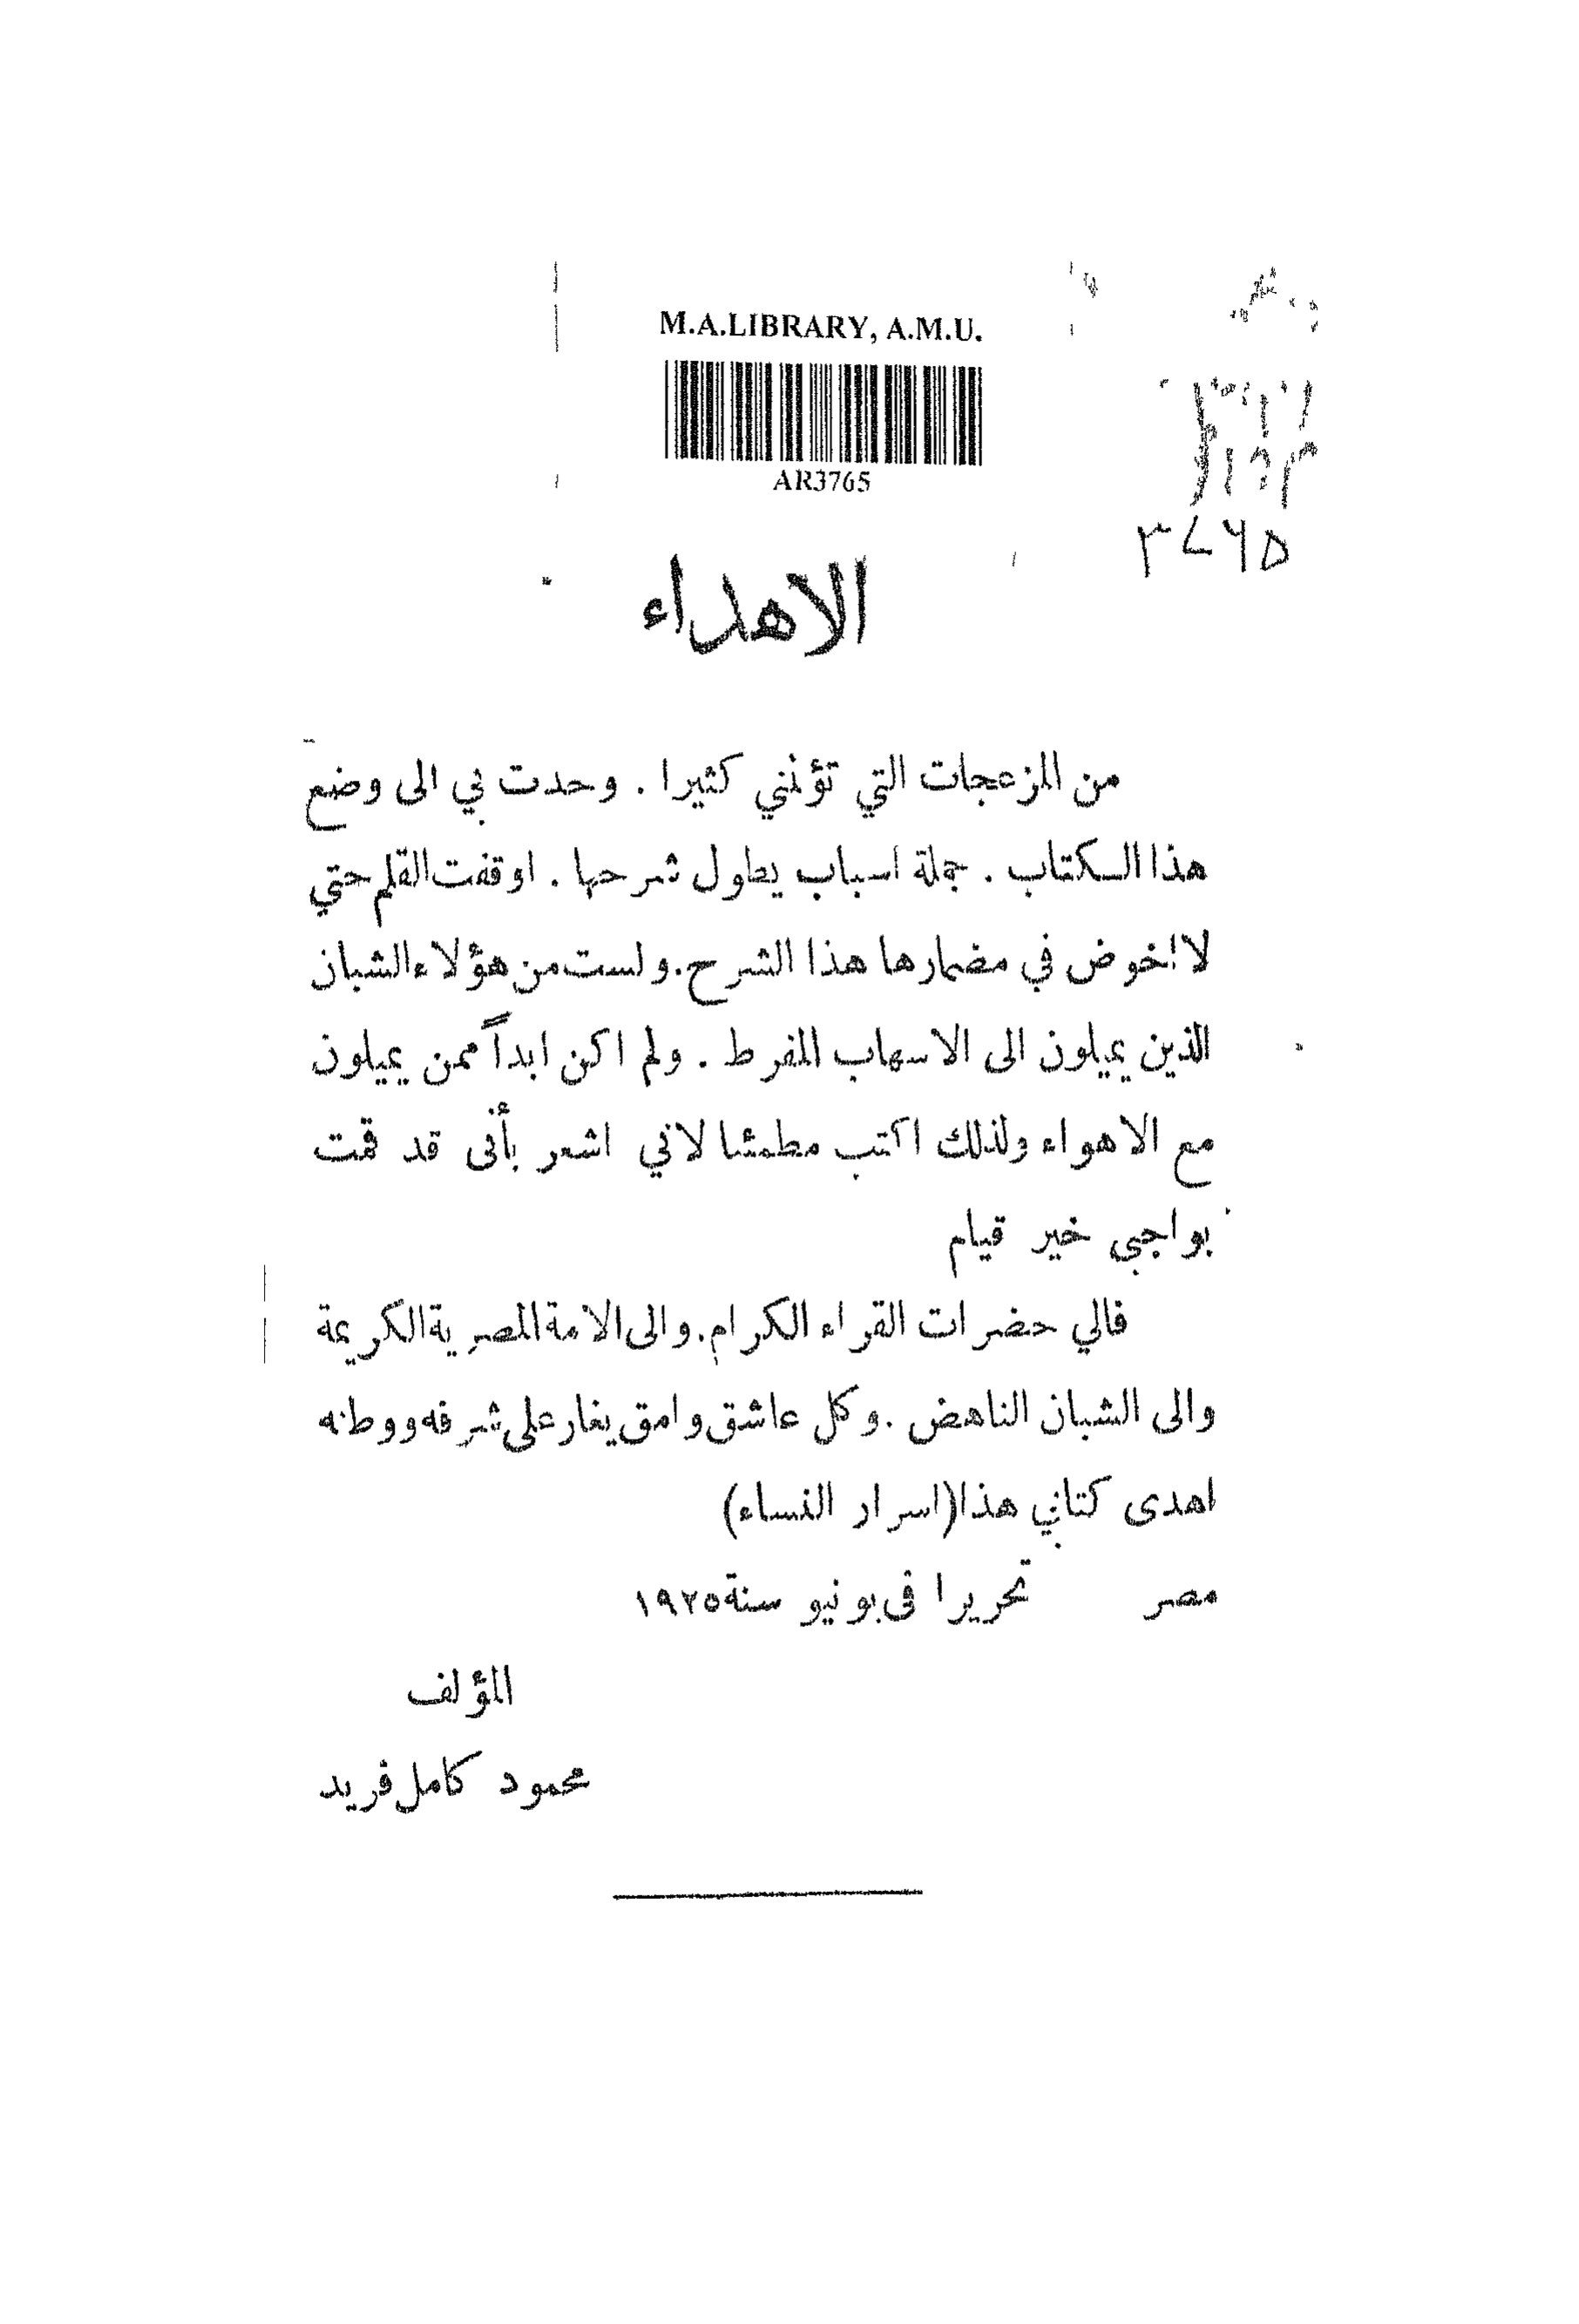 M.A.LIBRARY, A.M.U.
AR3765
٣٧٦٥
الاهداء
من المزعجات التي تؤلمني كثيرا . وحدت بي الى وضع
هذا الكتاب . جملة اسباب يطول شرحها . اوقفت القلم حتي
لا اخوض في مضمارها هذا الشرح . ولست من هؤلاء الشبان
الذين يميلون الى الاسهاب المفرط . ولم اكن ابداً ممن يميلون
مع الاهواء ولذلك اكتب مطمئنا لاني اشعر بأنى قد قمت
بواجبي خير قيام
فالي حضرات القراء الكرام . والى الامة المصرية الكريمة
والى الشبان الناهض . وكل عاشق وامق يغار على شرفه ووطنه
اهدى كتابي هذا (اسرار النساء)
مصر تحريرا فى يونيو سنة ١٩٢٥
المؤلف
محمود كامل فريد